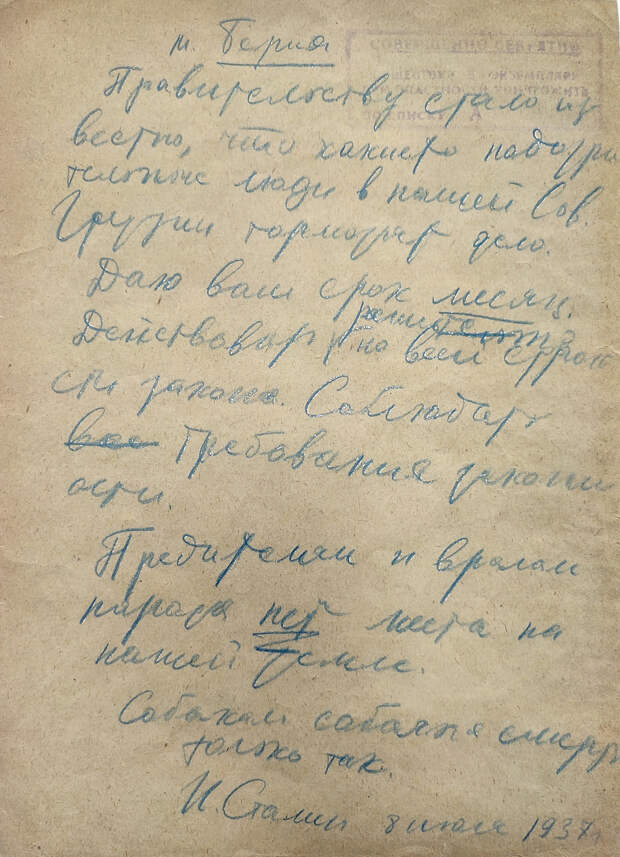 т. Берия
СОВЕРШЕННО СЕКРЕТНО
Правительству стало из
вестно, что какието подозри
тельные люди в нашей Сов.
Грузии тормозят дело.
Даю вам срок месяц.
решительно
Действовать по всей строго
сти закона. Соблюдать
все требования законн
ости.
Предителям и врагам
народа нет места на
нашей земле.
Собакам собачья смерть
только так.
И. Сталин 8 июля 1937г